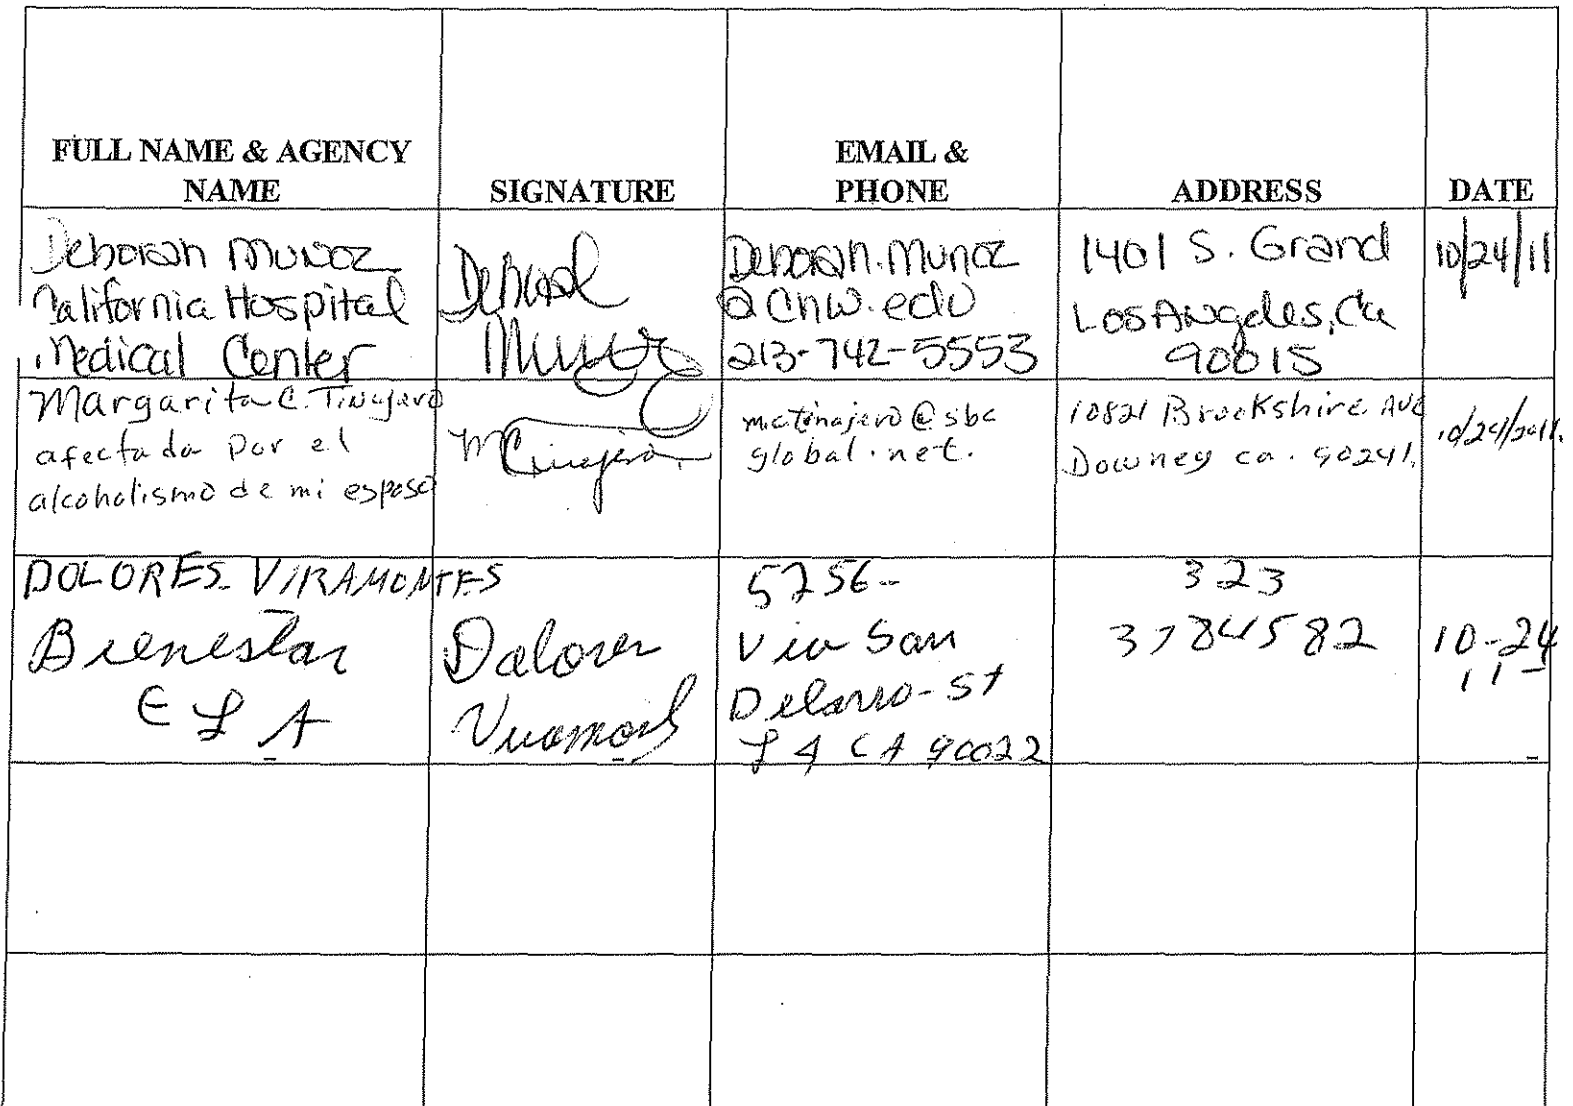 FULL NAME & AGENCY
NAME
SIGNATURE
EMAIL &
PHONE
ADDRESS
DATE
Deborah Munoz
California Hospital
Medical Center
Deborah
Munoz
Deborah.Munoz
@chw.edu
213-742-5553
1401 S. Grand
Los Angeles, Ca
90015
10/24/11
Margarita C. Tinajero
afectada por el
alcoholismo de mi esposo
MCTinajero.
mctinajero@sbc
global.net.
10821 Brookshire Ave
Downey ca. 90241.
10/24/2011.
DOLORES VIRAMONTES
Bienestar
E L A
Dolores
5256-
Via San
Delarro-St
L A CA 90022
323
3784582
10-24
11-